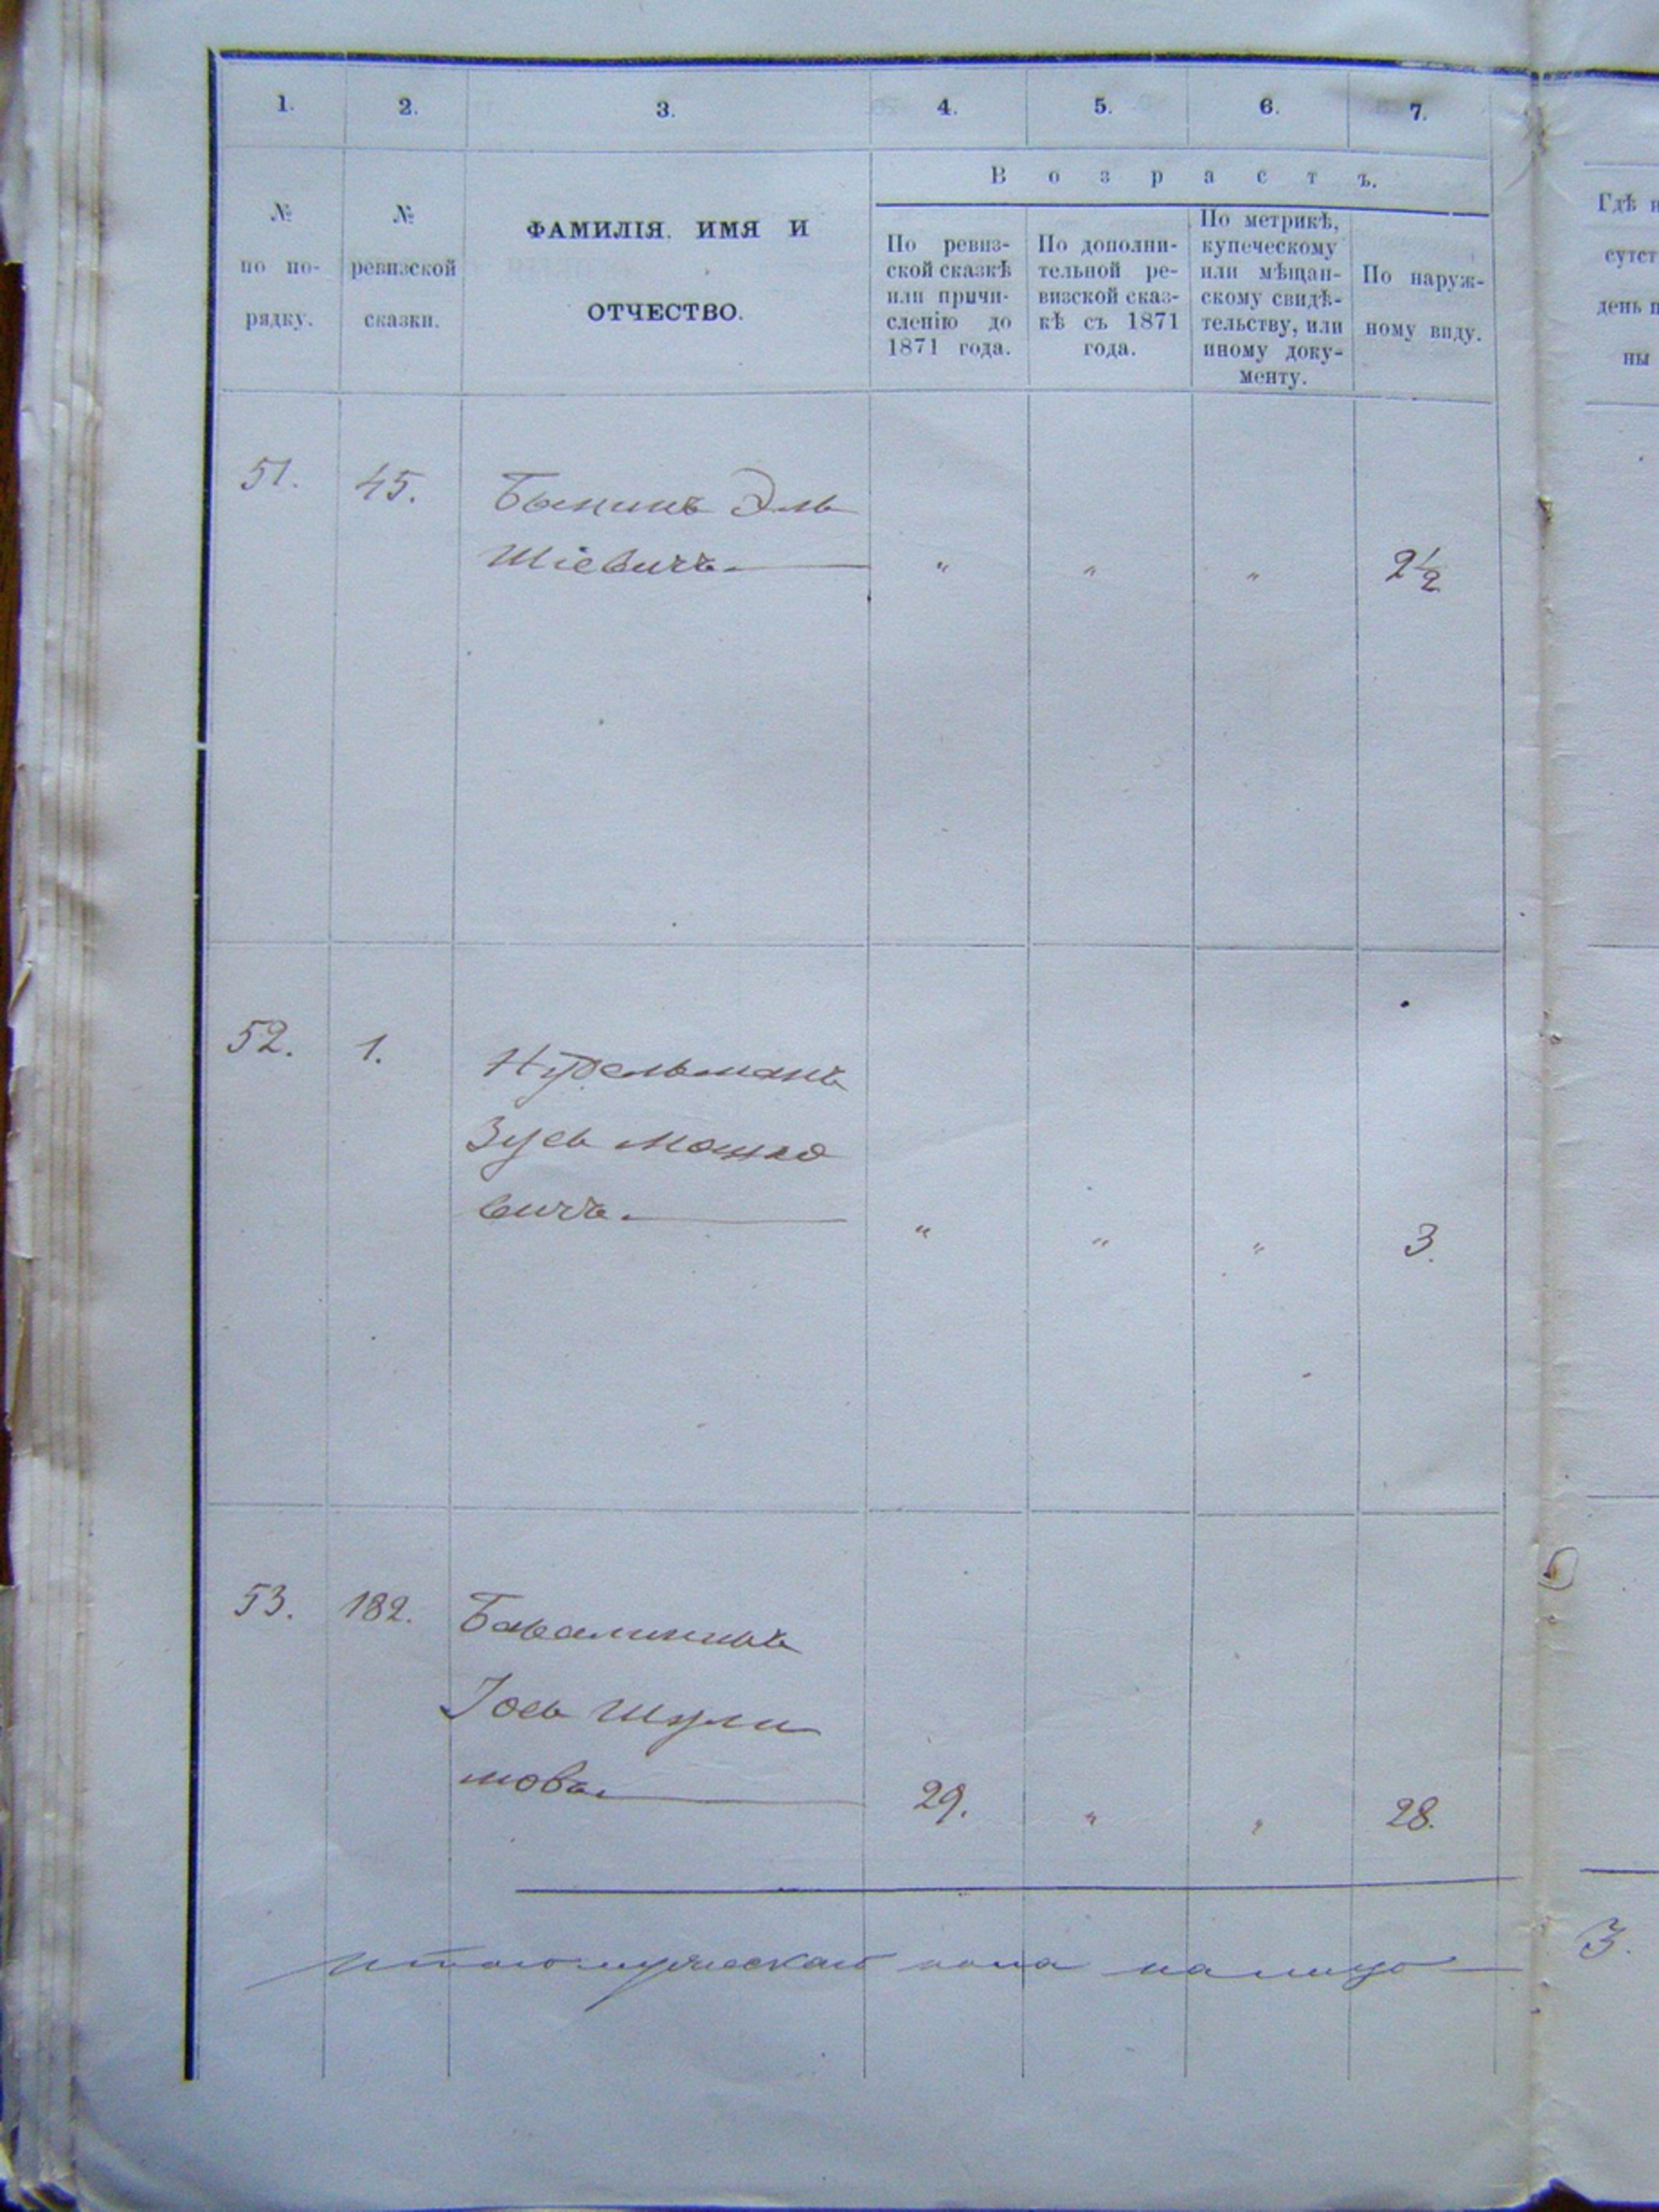 1. 2. 3. 4. 5. 6. 7.
Возрастъ.
№ по порядку.
№ ревизской сказки.
ФАМИЛІЯ, ИМЯ И
ОТЧЕСТВО.
По ревиз-
ской сказкѣ
или причи-
сленію до
1871 года.
По дополни-
тельной ре-
визской сказ-
кѣ съ 1871
года.
По метрикѣ,
купеческому
или мѣщан-
скому свидѣ-
тельству, или
иному доку-
менту.
По наруж-
ному виду.
Гдѣ н
сутст
день п
ны
51. 45. Эль
Шіевичъ. " " " 2½
52. 1. Нудельманъ
Зусь Мошко
вичъ. " " " 3.
53. 182.
Іось Шули
мовъ. 29. " " 28.
Итого мужескаго пола налицо 3.